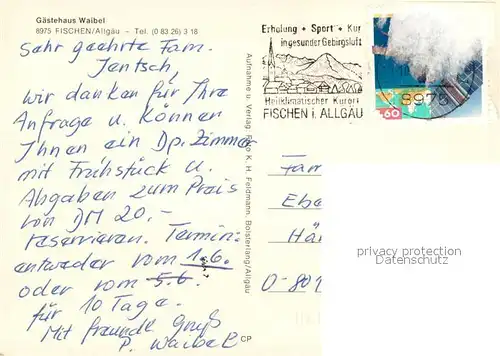 Gästehaus Waibel
8975 FISCHEN/Allgäu - Tel. (0 83 26) 3 18
Sehr geehrte Fam.
Jentsch,
wir danken für Ihre
Anfrage u. können
Ihnen ein Dp. Zimmer
mit Frühstück u.
Abgaben zum Preis
von DM 20,-
reservieren. Termin:
entweder vom 1.6.
oder vom 5.6.
für 10 Tage.
Mit freundl. Gruß
P. Waibel
Aufnahme u. Verlag Foto K. H. Feldmann, Bolsterlang/Allgäu
CP
Erholung • Sport • Kur
in gesunder Gebirgsluft
Heilklimatischer Kurort
FISCHEN i. ALLGÄU
8975
60
Fam
Ebe
Hä
O-809
privacy protection
Datenschutz